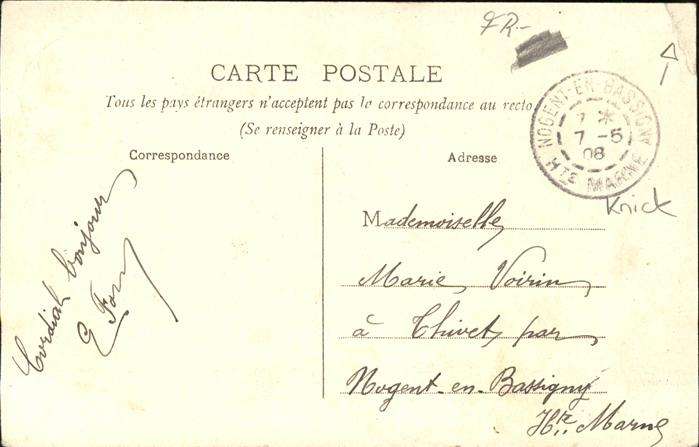 FR-
CARTE POSTALE
Tous les pays étrangers n'acceptent pas la correspondance au recto
(Se renseigner à la Poste)
Correspondance
Adresse
NOGENT-EN-BASSIGNY
7 -5
08
HTE MARNE
Knick
Cordial bonjour
Mademoiselle
Marie Voirin
à Thivet par
Nogent-en-Bassigny
Hte Marne